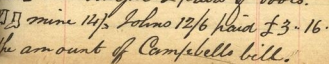 mine 14/5 Johns 12/6 paid £3.16.
the amount of Campbells bill.